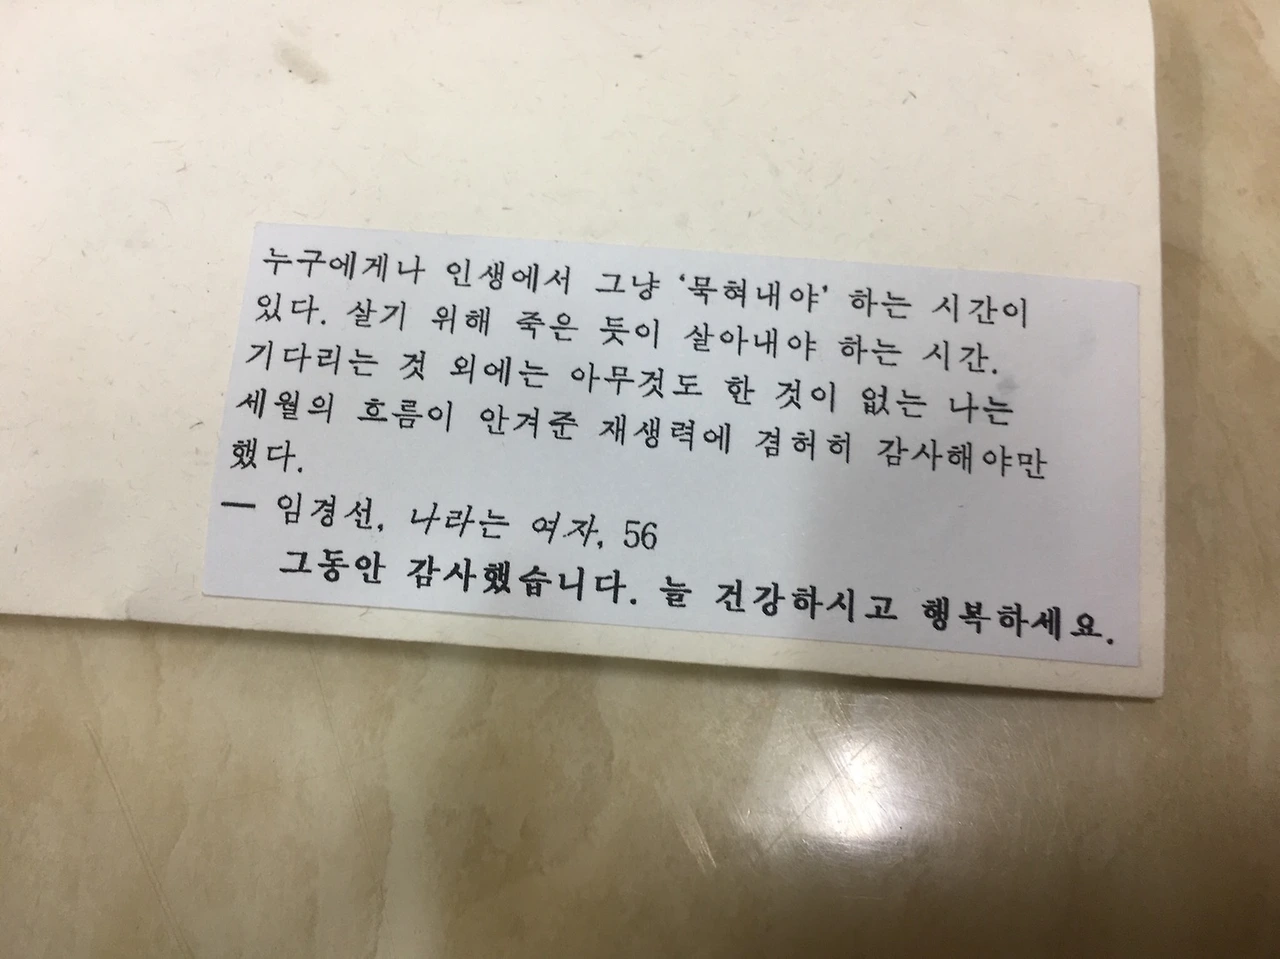 누구에게나 인생에서 그냥 ‘묵혀내야’ 하는 시간이
있다. 살기 위해 죽은 듯이 살아내야 하는 시간.
기다리는 것 외에는 아무것도 한 것이 없는 나는
세월의 흐름이 안겨준 재생력에 겸허히 감사해야만
했다.
— 임경선, 나라는 여자, 56
그동안 감사했습니다. 늘 건강하시고 행복하세요.